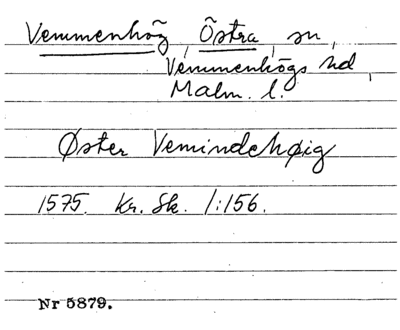 Vemmenhög, Östra, sn,
Vemmenhögs hd,
Malm. l.
Øster Vemindehøig
1575. Kr. Sk. 1:156.
Nr 5879.